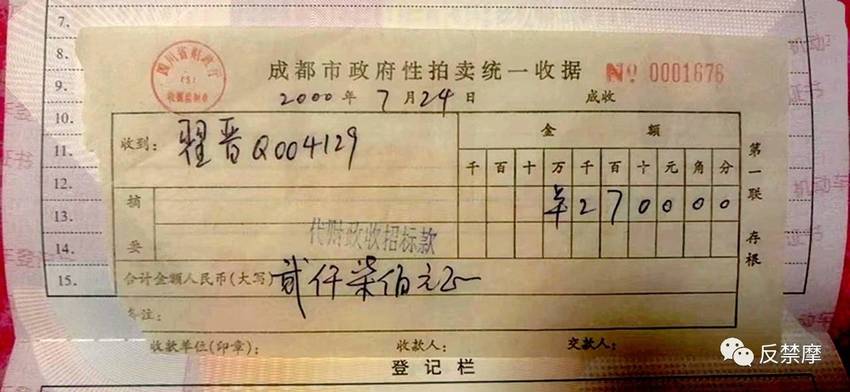 7.
8.
9.
10.
11.
12.
13.
14.
15.
四川省财政厅
(5)
收据监制章
成都市政府性拍卖统一收据 № 0001676
2000年7月24日 成收
收到：翟晋Q004129
金额
千百十万千百十元角分
¥270000
摘要
代财政收招标款
合计金额人民币(大写) 贰仟柒佰元正
备注：
收款单位(印章)： 收款人： 交款人：
第一联 存根
登记栏
反禁摩